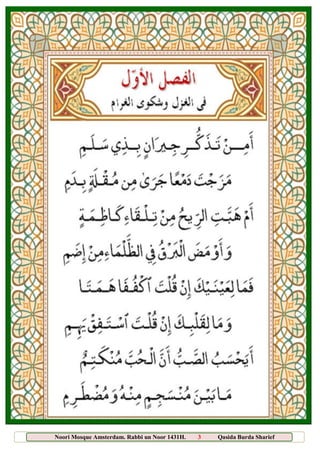 الفصل الأوّل
في الغزل وشكوى الغرام
أَمِـــنْ تَـذَكُّــرِ جِـيرَانٍ بِـــذِي سَــلَــمِ
مَزَجْتَ دَمْعًا جَرَى مِن مُـقْـلَةٍ بِـدَمِ
أَمْ هَبَّتِ الرِّيحُ مِنْ تِـلْـقَاءِ كَـاظِـمَـةٍ
وَأَوْمَضَ الْبَرْقُ فِي الظَّلْمَاءِ مِنْ إِضَمِ
فَمَا لِعَيْنَيْكَ إِنْ قُلْتَ ٱكْفُـفَا هَـمَـتَـا
وَمَا لِقَلْبِـكَ إِنْ قُلْـتَ ٱسْـتَـفِـقْ يَهِـمِ
أَيَحْسَبُ الصَّـبُّ أَنَّ الْـحُبَّ مُنْـكَـتِـمٌ
مَـا بَيْـنَ مُنْسَجِـمٍ مِنْـهُ وَمُضْـطَـرِمِ
Noori Mosque Amsterdam. Rabbi un Noor 1431H. 3 Qasida Burda Sharief